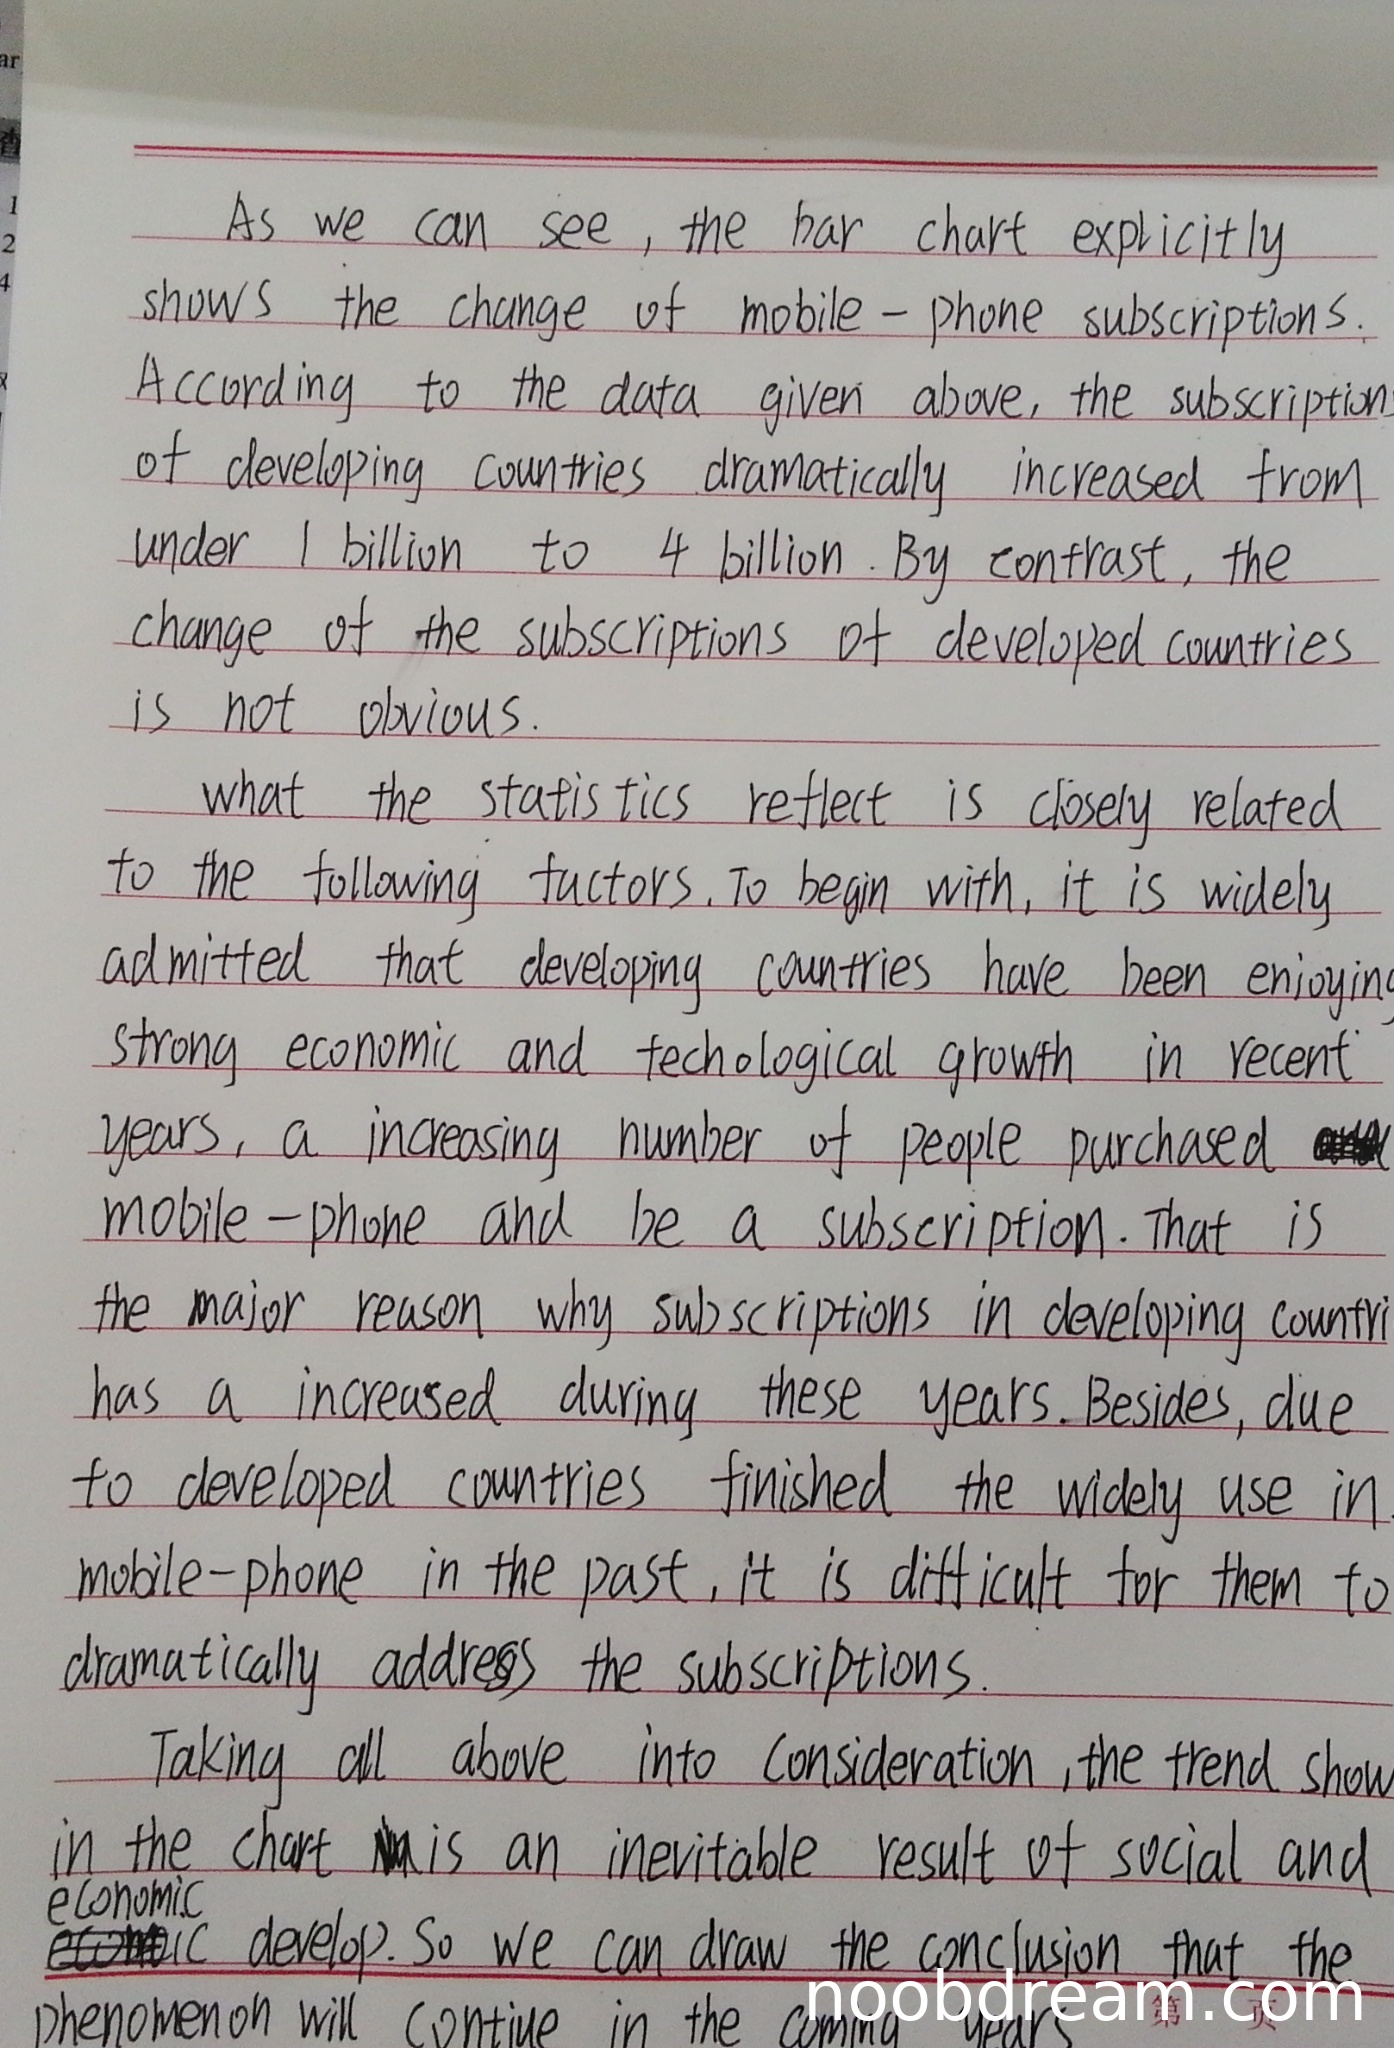 ar
查
1
2
4
As we can see, the bar chart explicitly
shows the change of mobile-phone subscriptions.
According to the data given above, the subscriptions
of developing countries dramatically increased from
under 1 billion to 4 billion. By contrast, the
change of the subscriptions of developed countries
is not obvious.
what the statistics reflect is closely related
to the following factors. To begin with, it is widely
admitted that developing countries have been enjoying
strong economic and techological growth in recent
years, a increasing number of people purchased
mobile-phone and be a subscription. That is
the major reason why subscriptions in developing countri
has a increased during these years. Besides, due
to developed countries finished the widely use in
mobile-phone in the past, it is difficult for them to
dramatically address the subscriptions.
Taking all above into consideration, the trend show
in the chart is an inevitable result of social and
economic
develop. So we can draw the conclusion that the
phenomenon will contiue in the coming years
第 页
noobdream.com